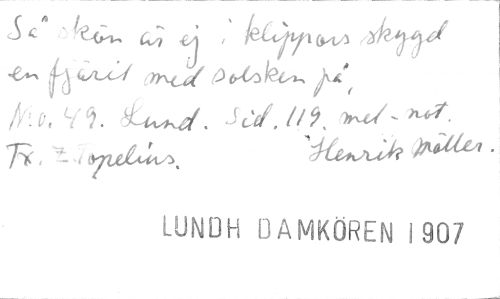 Så skön är ej i klippors skygd
en fjäril med solsken på,
No. 49. Lund. Sid. 119. mel-not.
Tx. Z. Topelius. Henrik Möller.
LUNDH DAMKÖREN 1907